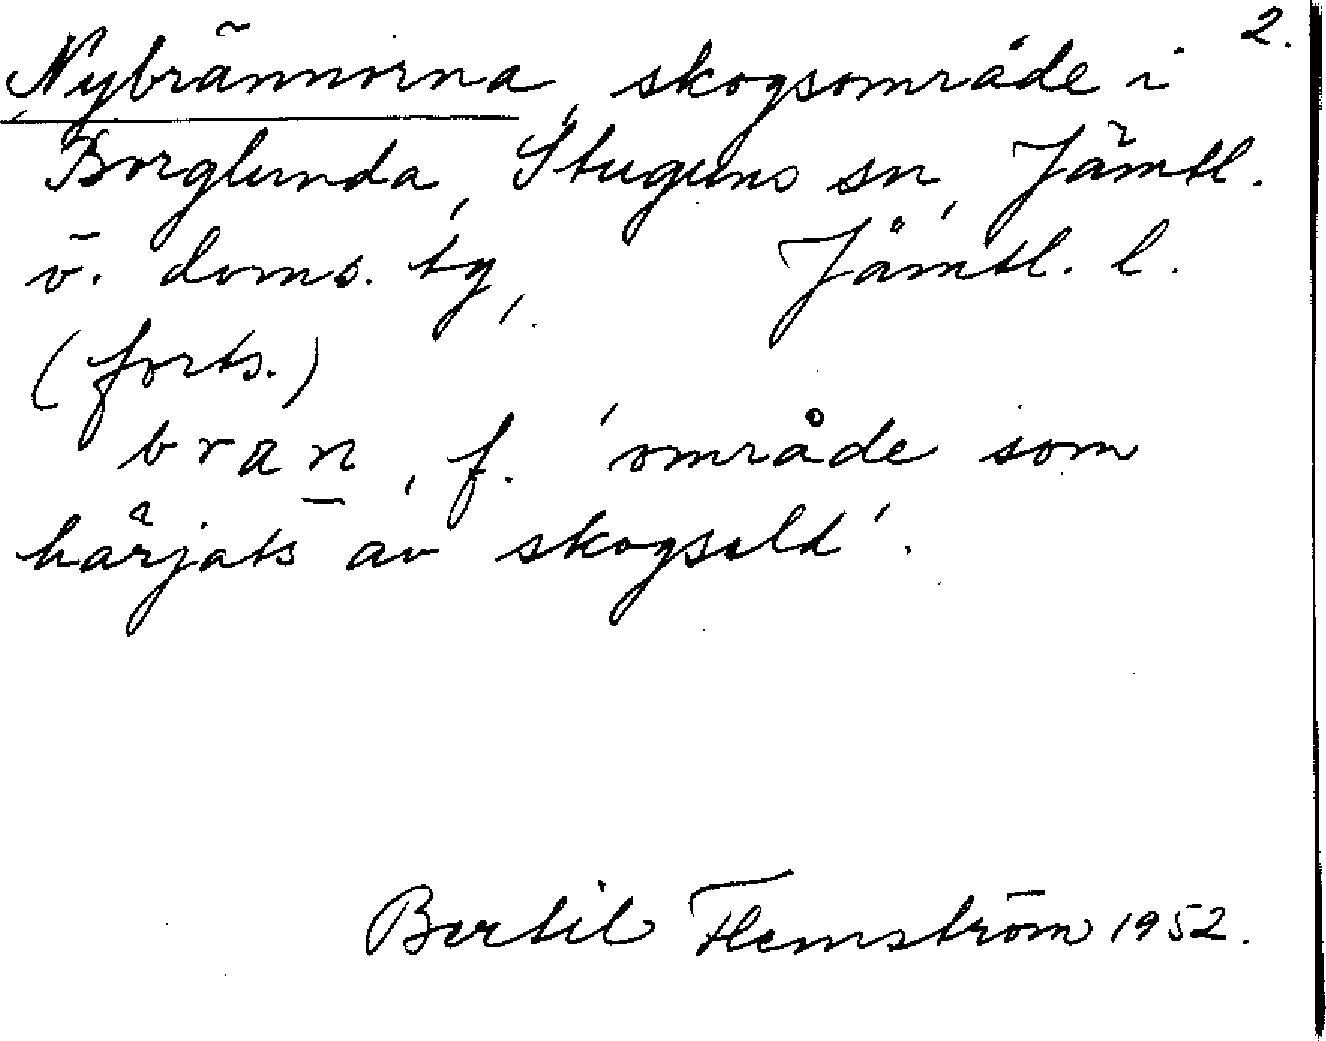 2.
Nybrännorna, skogsområde i
Borglunda, Stuguns sn, Jämtl.
ö. doms. tg, Jämtl. l.
(forts.)
bran, f. 'område som
härjats av skogseld'.
Bertil Flemström 1952.